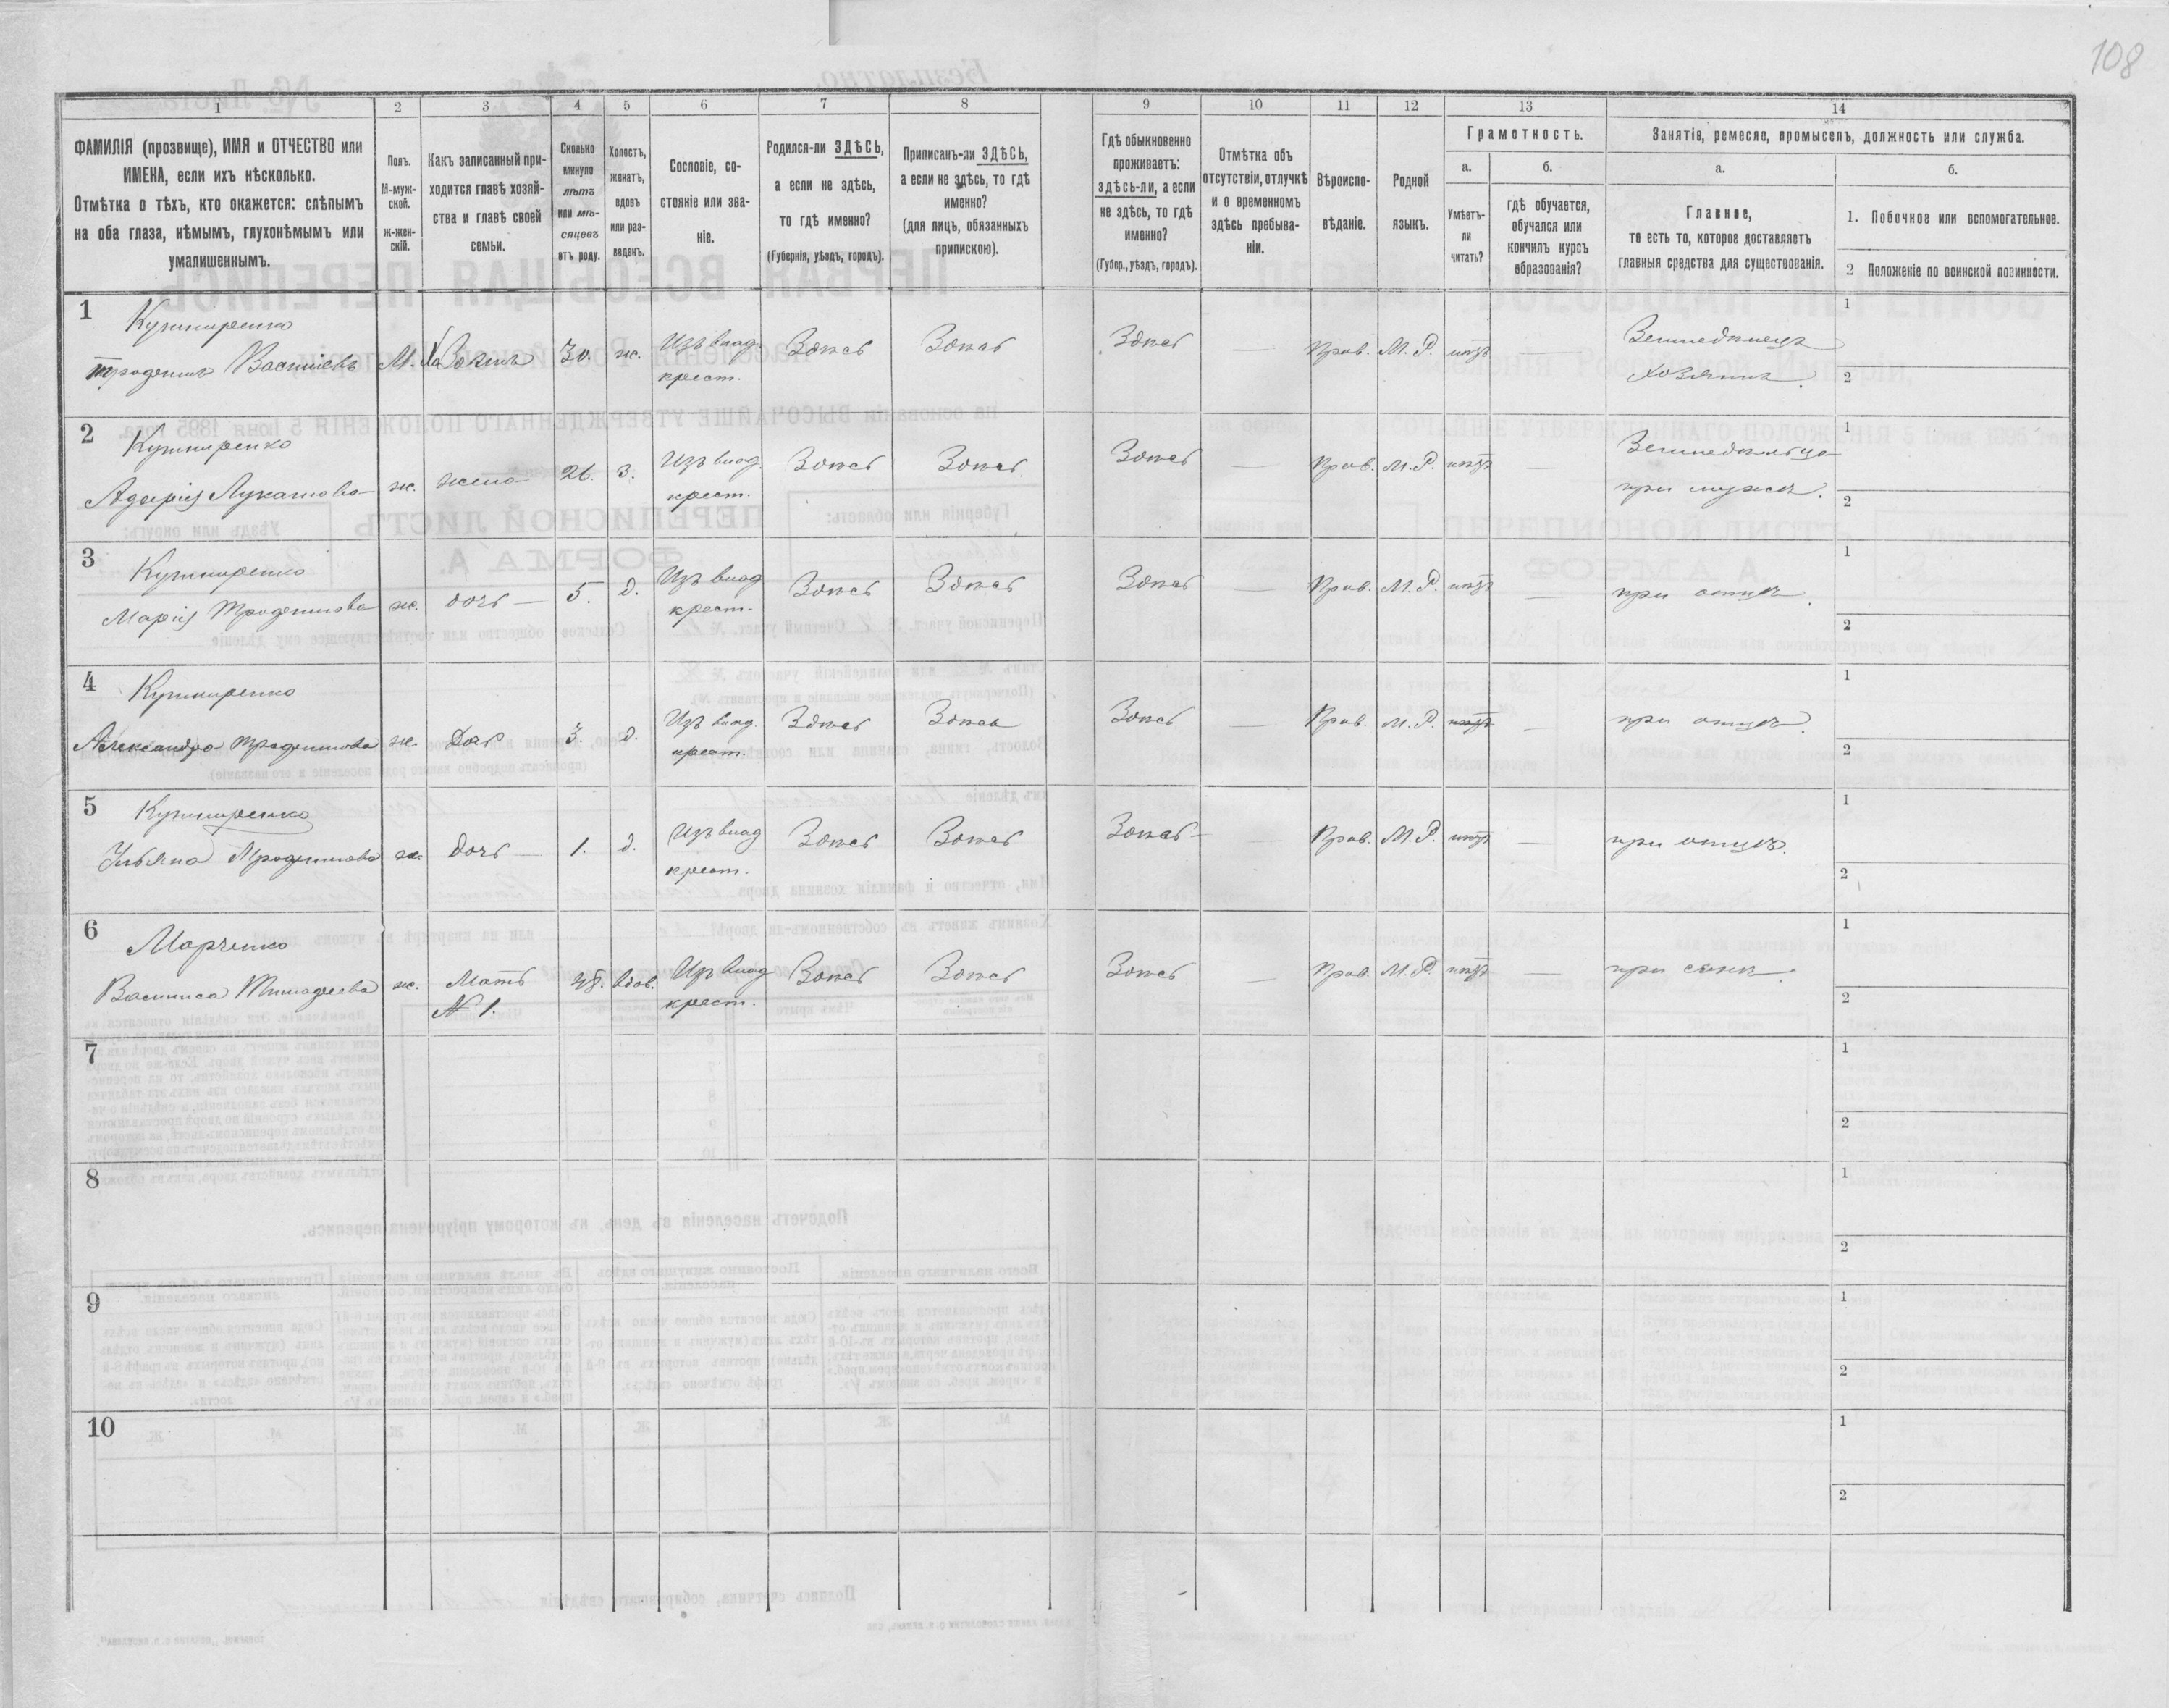 108
1 2 3 4 5 6 7 8 9 10 11 12 13 14
ФАМИЛІЯ (прозвище), ИМЯ и ОТЧЕСТВО или
ИМЕНА, если ихъ нѣсколько.
Отмѣтка о тѣхъ, кто окажется: слѣпымъ
на оба глаза, нѣмымъ, глухонѣмымъ или
умалишеннымъ.
Полъ.
М-муж-
ской.
Ж-жен-
скій.
Какъ записанный при-
ходится главѣ хозяй-
ства и главѣ своей
семьи.
Сколько
минуло
лѣтъ
или мѣ-
сяцевъ
отъ роду.
Холостъ,
женатъ,
вдовъ
или раз-
веденъ.
Сословіе, со-
стояніе или зва-
ніе.
Родился-ли ЗДѢСЬ,
а если не здѣсь,
то гдѣ именно?
(Губернія, уѣздъ, городъ).
Приписанъ-ли ЗДѢСЬ,
а если не здѣсь, то гдѣ
именно?
(для лицъ, обязанныхъ
припискою).
Гдѣ обыкновенно
проживаетъ:
здѣсь-ли, а если
не здѣсь, то гдѣ
именно?
(Губер., уѣздъ, городъ).
Отмѣтка объ
отсутствіи, отлучкѣ
и о временномъ
здѣсь пребыва-
ніи.
Вѣроиспо-
вѣданіе.
Родной
языкъ.
Грамотность.
а. б.
Умѣетъ-
ли
читать?
гдѣ обучается,
обучался или
кончилъ курсъ
образованія?
Занятіе, ремесло, промыселъ, должность или служба.
а. б.
Главное,
то есть то, которое доставляетъ
главныя средства для существованія.
1. Побочное или вспомогательное.
2 Положеніе по воинской повинности.
1 Кушниренко
Васильевъ М. Хозяинъ 30. ж. Изъ влад. Здѣсь Здѣсь Здѣсь — Прав. М. Р. нѣтъ — Земледѣлецъ 1
крест. хозяинъ. 2
2 Кушниренко
Лукашова ж. жена 26. З. Изъ влад. Здѣсь Здѣсь Здѣсь — Прав. М. Р. нѣтъ Земледѣльца 1
крест. при мужѣ. 2
3 Кушниренко
Марія ж. дочь — 5. д. Изъ влад Здѣсь Здѣсь Здѣсь — Прав. М. Р. нѣтъ — при отцѣ. 1
крест. 2
4 Кушниренко
Александра ж. Дочь 3. д. Изъ влад. Здѣсь Здѣсь Здѣсь — Прав. М. Р. нѣтъ — при отцѣ. 1
крест. 2
5 Кушниренко
Ульяна ж. дочь — 1. д. Изъ влад Здѣсь Здѣсь Здѣсь — Прав. М. Р. нѣтъ — при отцѣ. 1
крест. 2
6 Марченко
Василиса ж. Мать вдов. Изъ влад Здѣсь Здѣсь Здѣсь — Прав. М. Р. нѣтъ — при сынѣ. 1
№ 1. крест. 2
7 1
2
8 1
2
9 1
2
10 1
2